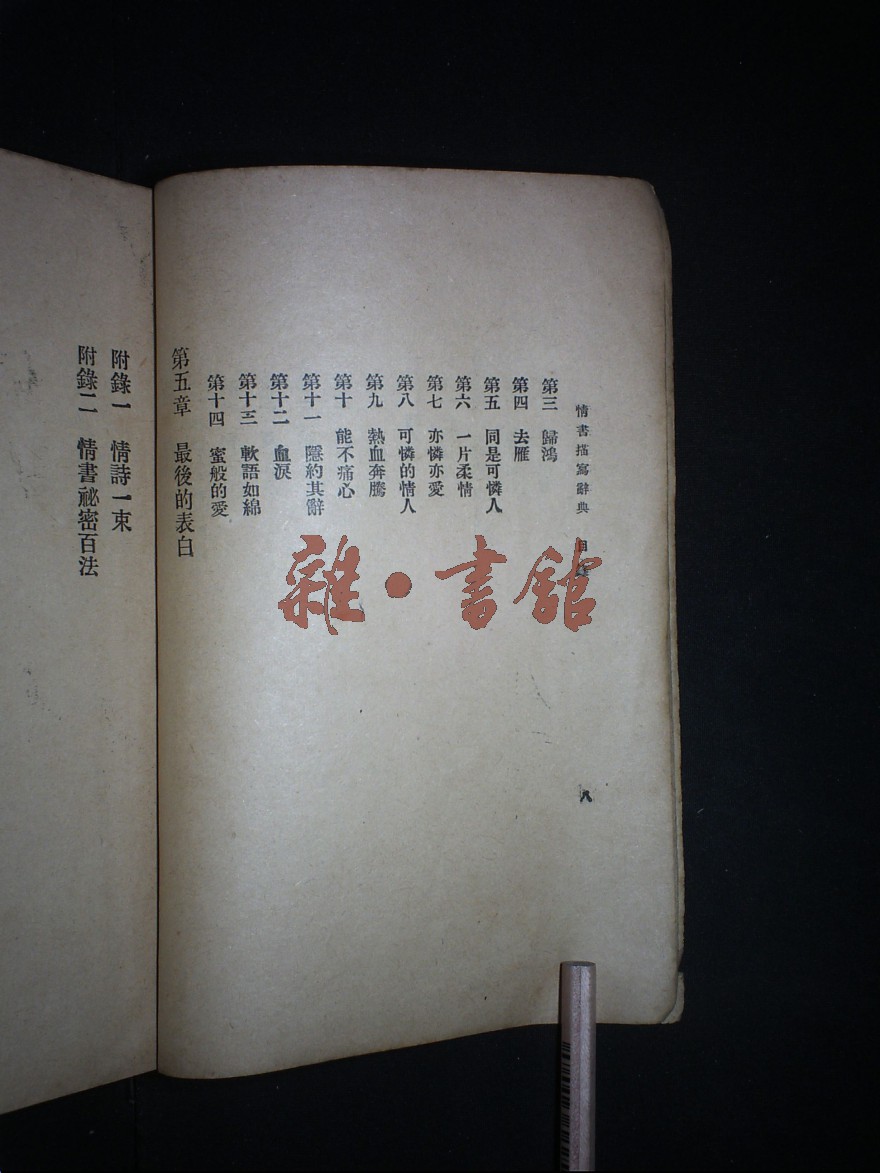 情書描寫辭典 目錄
八
第三 歸鴻
第四 去雁
第五 同是可憐人
第六 一片柔情
第七 亦憐亦愛
第八 可憐的情人
第九 熱血奔騰
第十 能不痛心
第十一 隱約其辭
第十二 血淚
第十三 軟語如綿
第十四 蜜般的愛
第五章 最後的表白
附錄一 情詩一束
附錄二 情書祕密百法
雜·書館